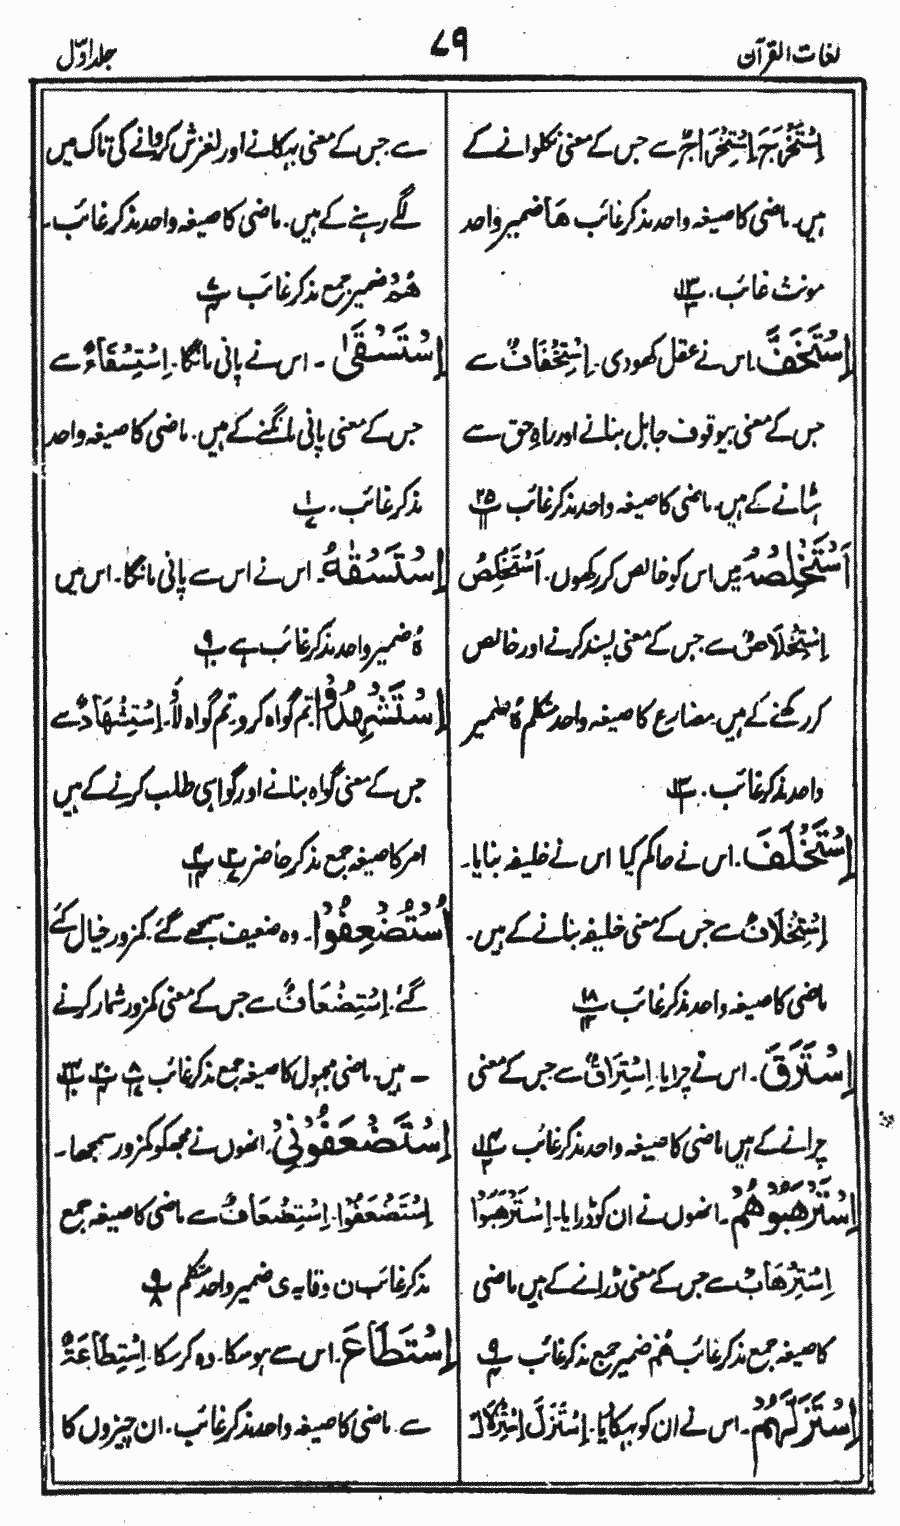 لغات القرآن
۷۹
جلد اوّل
اِسْتَخْرَجَ اِسْتِخْرَاجٌ سے جس کے معنی نکلوانے کے
ہیں۔ ماضی کا صیغہ واحد مذکر غائب ھَا ضمیر واحد
مونث غائب۔ پ۱۳
اِسْتَخَفَّ۔ اس نے عقل کھودی۔ اِسْتِخْفَافٌ سے
جس کے معنی بیوقوف جاہل بنانے اور راہِ حق سے
ہٹانے کے ہیں۔ ماضی کا صیغہ واحد مذکر غائب پ۲۵
اَسْتَخْلِصْہُ میں اس کو خالص کر رکھوں۔ اَسْتَخْلِصُ
اِسْتِخْلَاصٌ سے جس کے معنی پسند کرنے اور خالص
کر رکھنے کے ہیں۔ مضارع کا صیغہ واحد متکلم ہٗ ضمیر
واحد مذکر غائب۔ پ۱۳
اِسْتَخْلَفَ۔ اس نے حاکم کیا اس نے خلیفہ بنایا۔
اِسْتِخْلَافٌ سے جس کے معنی خلیفہ بنانے کے ہیں۔
ماضی کا صیغہ واحد مذکر غائب پ۱۸
اِسْتَرَقَ۔ اس نے چرایا۔ اِسْتِرَاقٌ سے جس کے معنی
چرانے کے ہیں ماضی کا صیغہ واحد مذکر غائب پ۱۴
اِسْتَرْھَبُوْھُمْ۔ انھوں نے ان کو ڈرایا۔ اِسْتَرْھَبُوْا
اِسْتِرْھَابٌ سے جس کے معنی ڈرانے کے ہیں ماضی
کا صیغہ جمع مذکر غائب ھُمْ ضمیر جمع مذکر غائب پ۹
اِسْتَزَلَّہُمْ۔ اس نے ان کو بہکایا۔ اِسْتَزَلَّ اِسْتِزْلَالٌ
سے جس کے معنی بہکانے اور لغزش کروانے کی تاک میں
لگے رہنے کے ہیں۔ ماضی کا صیغہ واحد مذکر غائب۔
ھُمْ ضمیر جمع مذکر غائب پ۴
اِسْتَسْقٰی ۔ اس نے پانی مانگا۔ اِسْتِسْقَاءٌ سے
جس کے معنی پانی مانگنے کے ہیں۔ ماضی کا صیغہ واحد
مذکر غائب۔ پ۱
اِسْتَسْقٰہُ۔ اس نے اس سے پانی مانگا۔ اس میں
ہٗ ضمیر واحد مذکر غائب ہے پ۹
اِسْتَشْہِدُوْا تم گواہ کرو۔ تم گواہ لاؤ۔ اِسْتِشْہَادٌ سے
جس کے معنی گواہ بنانے اور گواہی طلب کرنے کے ہیں
امر کا صیغہ جمع مذکر حاضر
اُسْتُضْعِفُوْا۔ وہ ضعیف سمجھے گئے۔ کمزور خیال کئے
گئے۔ اِسْتِضْعَافٌ سے جس کے معنی کمزور شمار کرنے
۔ ہیں۔ ماضی مجہول کا صیغہ جمع مذکر غائب
اِسْتَضْعَفُوْنِیْ۔ انھوں نے مجھکو کمزور سمجھا۔
اِسْتَضْعَفُوْا۔ اِسْتِضْعَافٌ سے ماضی کا صیغہ جمع
مذکر غائب ن وقایہ ی ضمیر واحد متکلم پ۹
اِسْتَطَاعَ۔ اس سے ہو سکا۔ وہ کر سکا۔ اِسْتِطَاعَۃٌ
سے۔ ماضی کا صیغہ واحد مذکر غائب۔ ان چیزوں کا